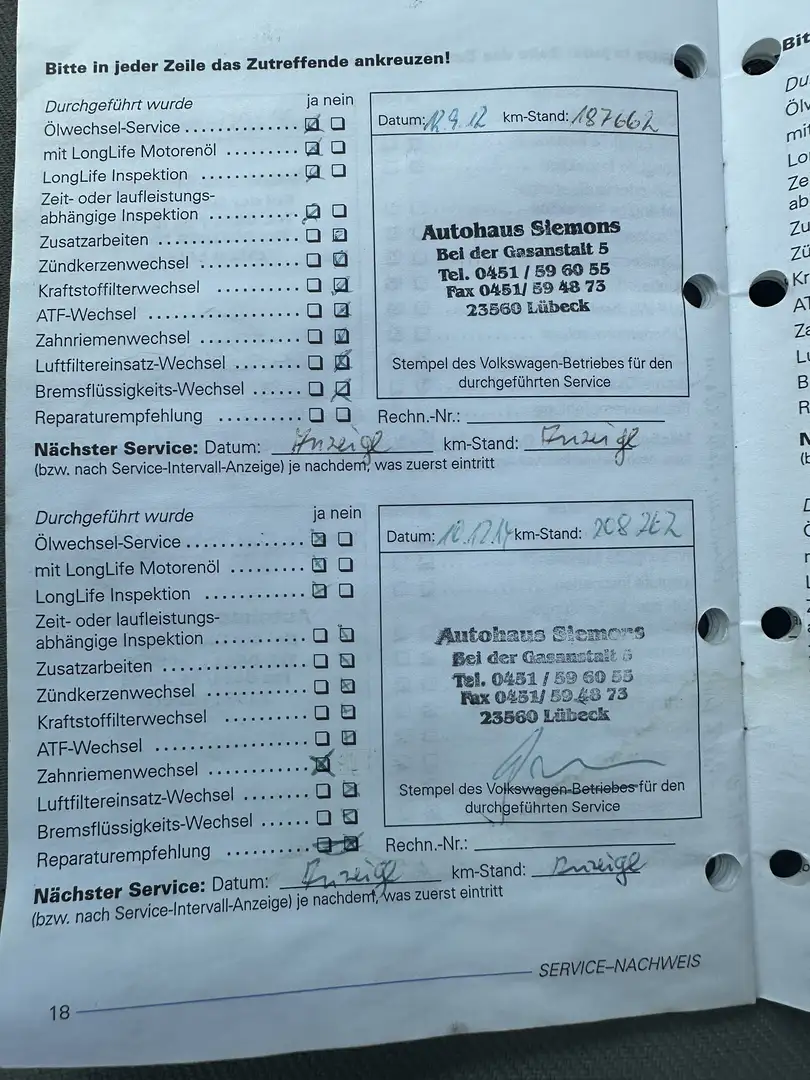 Bitte in jeder Zeile das Zutreffende ankreuzen!
Durchgeführt wurde ja nein
Ölwechsel-Service
mit LongLife Motorenöl
LongLife Inspektion
Zeit- oder laufleistungs-
abhängige Inspektion
Zusatzarbeiten
Zündkerzenwechsel
Kraftstoffilterwechsel
ATF-Wechsel
Zahnriemenwechsel
Luftfiltereinsatz-Wechsel
Bremsflüssigkeits-Wechsel
Reparaturempfehlung
Datum: 12.9.12 km-Stand: 187662
Autohaus Siemons
Bei der Gasanstalt 5
Tel. 0451 / 59 60 55
Fax 0451/ 59 48 73
23560 Lübeck
Stempel des Volkswagen-Betriebes für den
durchgeführten Service
Rechn.-Nr.:
Nächster Service: Datum: Anzeige km-Stand: Anzeige
(bzw. nach Service-Intervall-Anzeige) je nachdem, was zuerst eintritt
Durchgeführt wurde ja nein
Ölwechsel-Service
mit LongLife Motorenöl
LongLife Inspektion
Zeit- oder laufleistungs-
abhängige Inspektion
Zusatzarbeiten
Zündkerzenwechsel
Kraftstoffilterwechsel
ATF-Wechsel
Zahnriemenwechsel
Luftfiltereinsatz-Wechsel
Bremsflüssigkeits-Wechsel
Reparaturempfehlung
Datum: km-Stand: 208 262
Autohaus Siemons
Bei der Gasanstalt 5
Tel. 0451 / 59 60 55
Fax 0451/ 59 48 73
23560 Lübeck
Stempel des Volkswagen-Betriebes für den
durchgeführten Service
Rechn.-Nr.:
Nächster Service: Datum: Anzeige km-Stand: Anzeige
(bzw. nach Service-Intervall-Anzeige) je nachdem, was zuerst eintritt
SERVICE–NACHWEIS
18